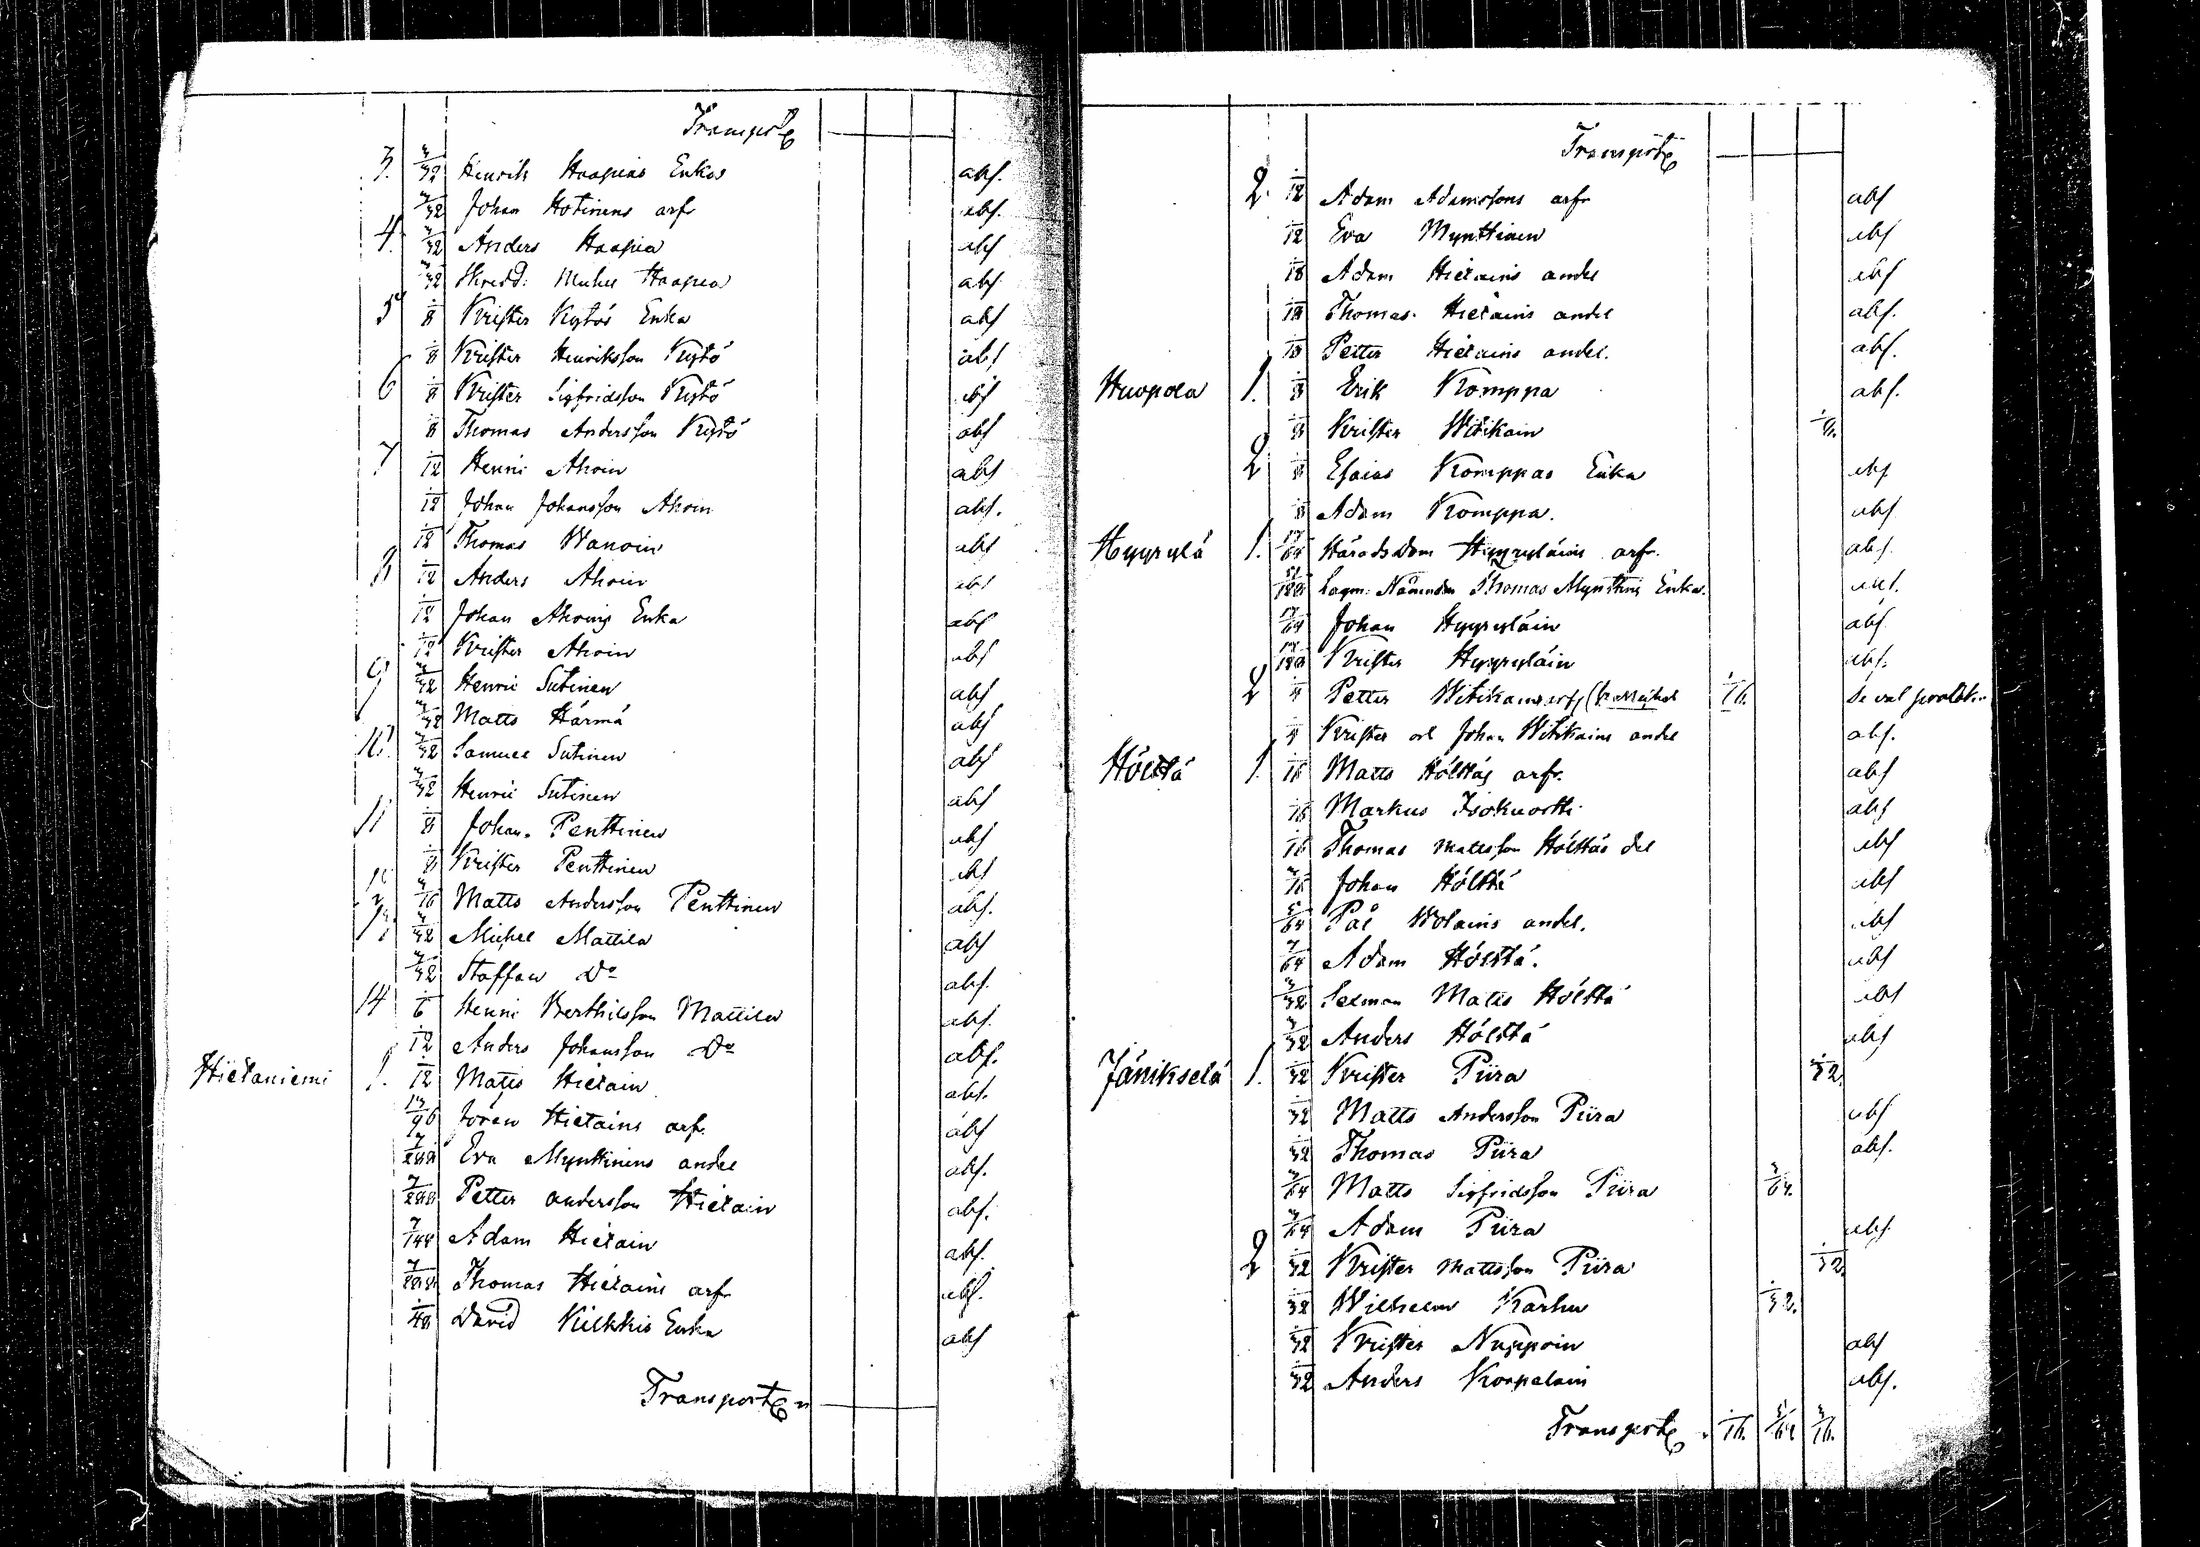 Transport
3. 3/32 Henrik Haapias Enkas abs.
3/32 Johan Hotinens arfr abs.
4. 3/32 Anders Haapia abs
3/32 Skredd: Haapia abs
5 1/8 Krister Kytös Enka abs
1/8 Krister Henriksson Kytö abs
6 1/8 Krister Sigfridsson Kytö abs
1/8 Thomas Andersson Kytö abs
7 1/12 Henric Ahoin abs
1/12 Johan Johansson Ahoin abs.
1/12 Thomas Wanoin abs
8 1/12 Anders Ahoin abs
1/12 Johan Ahoins Enka abs
1/12 Krister Ahoin abs
9 3/32 Henric Sutinen abs
3/32 Matts Härmä abs
10. 3/32 Samuel Sutinen abs
3/32 Henric Sutinen abs
11 1/8 Johan Penttinen abs
1/8 Krister Penttinen abs
3/16 Matts Andersson Penttinen abs.
3/32 Michel Mattila abs
3/32 Staffan Do abs.
14 1/6 Henric Berthilsson Mattila abs.
1/12 Anders Johansson Do abs.
Hietaniemi 1. 1/12 Matts Hietain abs.
13/96 Jöran Hietains arfr. abs
7/288 Eva Mynttinens andel abs.
7/288 Petter andersson Hietain abs.
7/144 Adam Hietain abs.
7/288 Thomas Hietains arfr abs.
1/48 David Kilkkis Enka abs
Transport
Transport
2. 1/12 Adam Adamssons arfr abs
1/12 Eva Mynttinen abs
1/18 Adam Hietains andel abs
1/18 Thomas Hietains andel abs.
1/18 Petter Hietains andel. abs.
Huopola 1. 1/8 Erik Komppa abs.
1/8 Krister Witikain 1/8.
2 1/8 Esaias Komppas Enka abs
1/8 Adam Komppa. abs
Hyyrylä 1. 17/64 Häradsdom Hyyryläins arfr. abs.
51/128 Lagm: Nämndem Thomas Mynttins Enka. abs.
17/64 Johan Hyyryläin abs
17/128 Krister Hyyryläin abs.
2 1/4 Petter Witikains arfr 1/16.
1/4 Krister och Johan Witikains andel abs.
Hölttä 1. 1/16 Matts Hölttäs arfr. abs
1/16 Markus Isokuortti abs
1/16 Thomas Mattsson Hölttäs del abs
3/16 Johan Hölttä abs
5/64 Pål Wolains andel. abs
7/64 Adam Hölttä. abs
3/32 Matts Hölttä abs
3/32 Anders Hölttä abs
Jänikselä 1. 1/32 Krister Piira 1/32.
1/32 Matts Andersson Piira abs
1/32 Thomas Piira abs.
3/64 Matts Sigfridsson Piira 3/64.
3/64 Adam Piira abs
2 1/32 Krister Mattsson Piira 1/32.
1/32 Wilhelm Karhu 1/32.
1/32 Krister Nuppoin abs
1/32 Anders Koopalain abs.
Transport 1/16. 5/64 3/16.